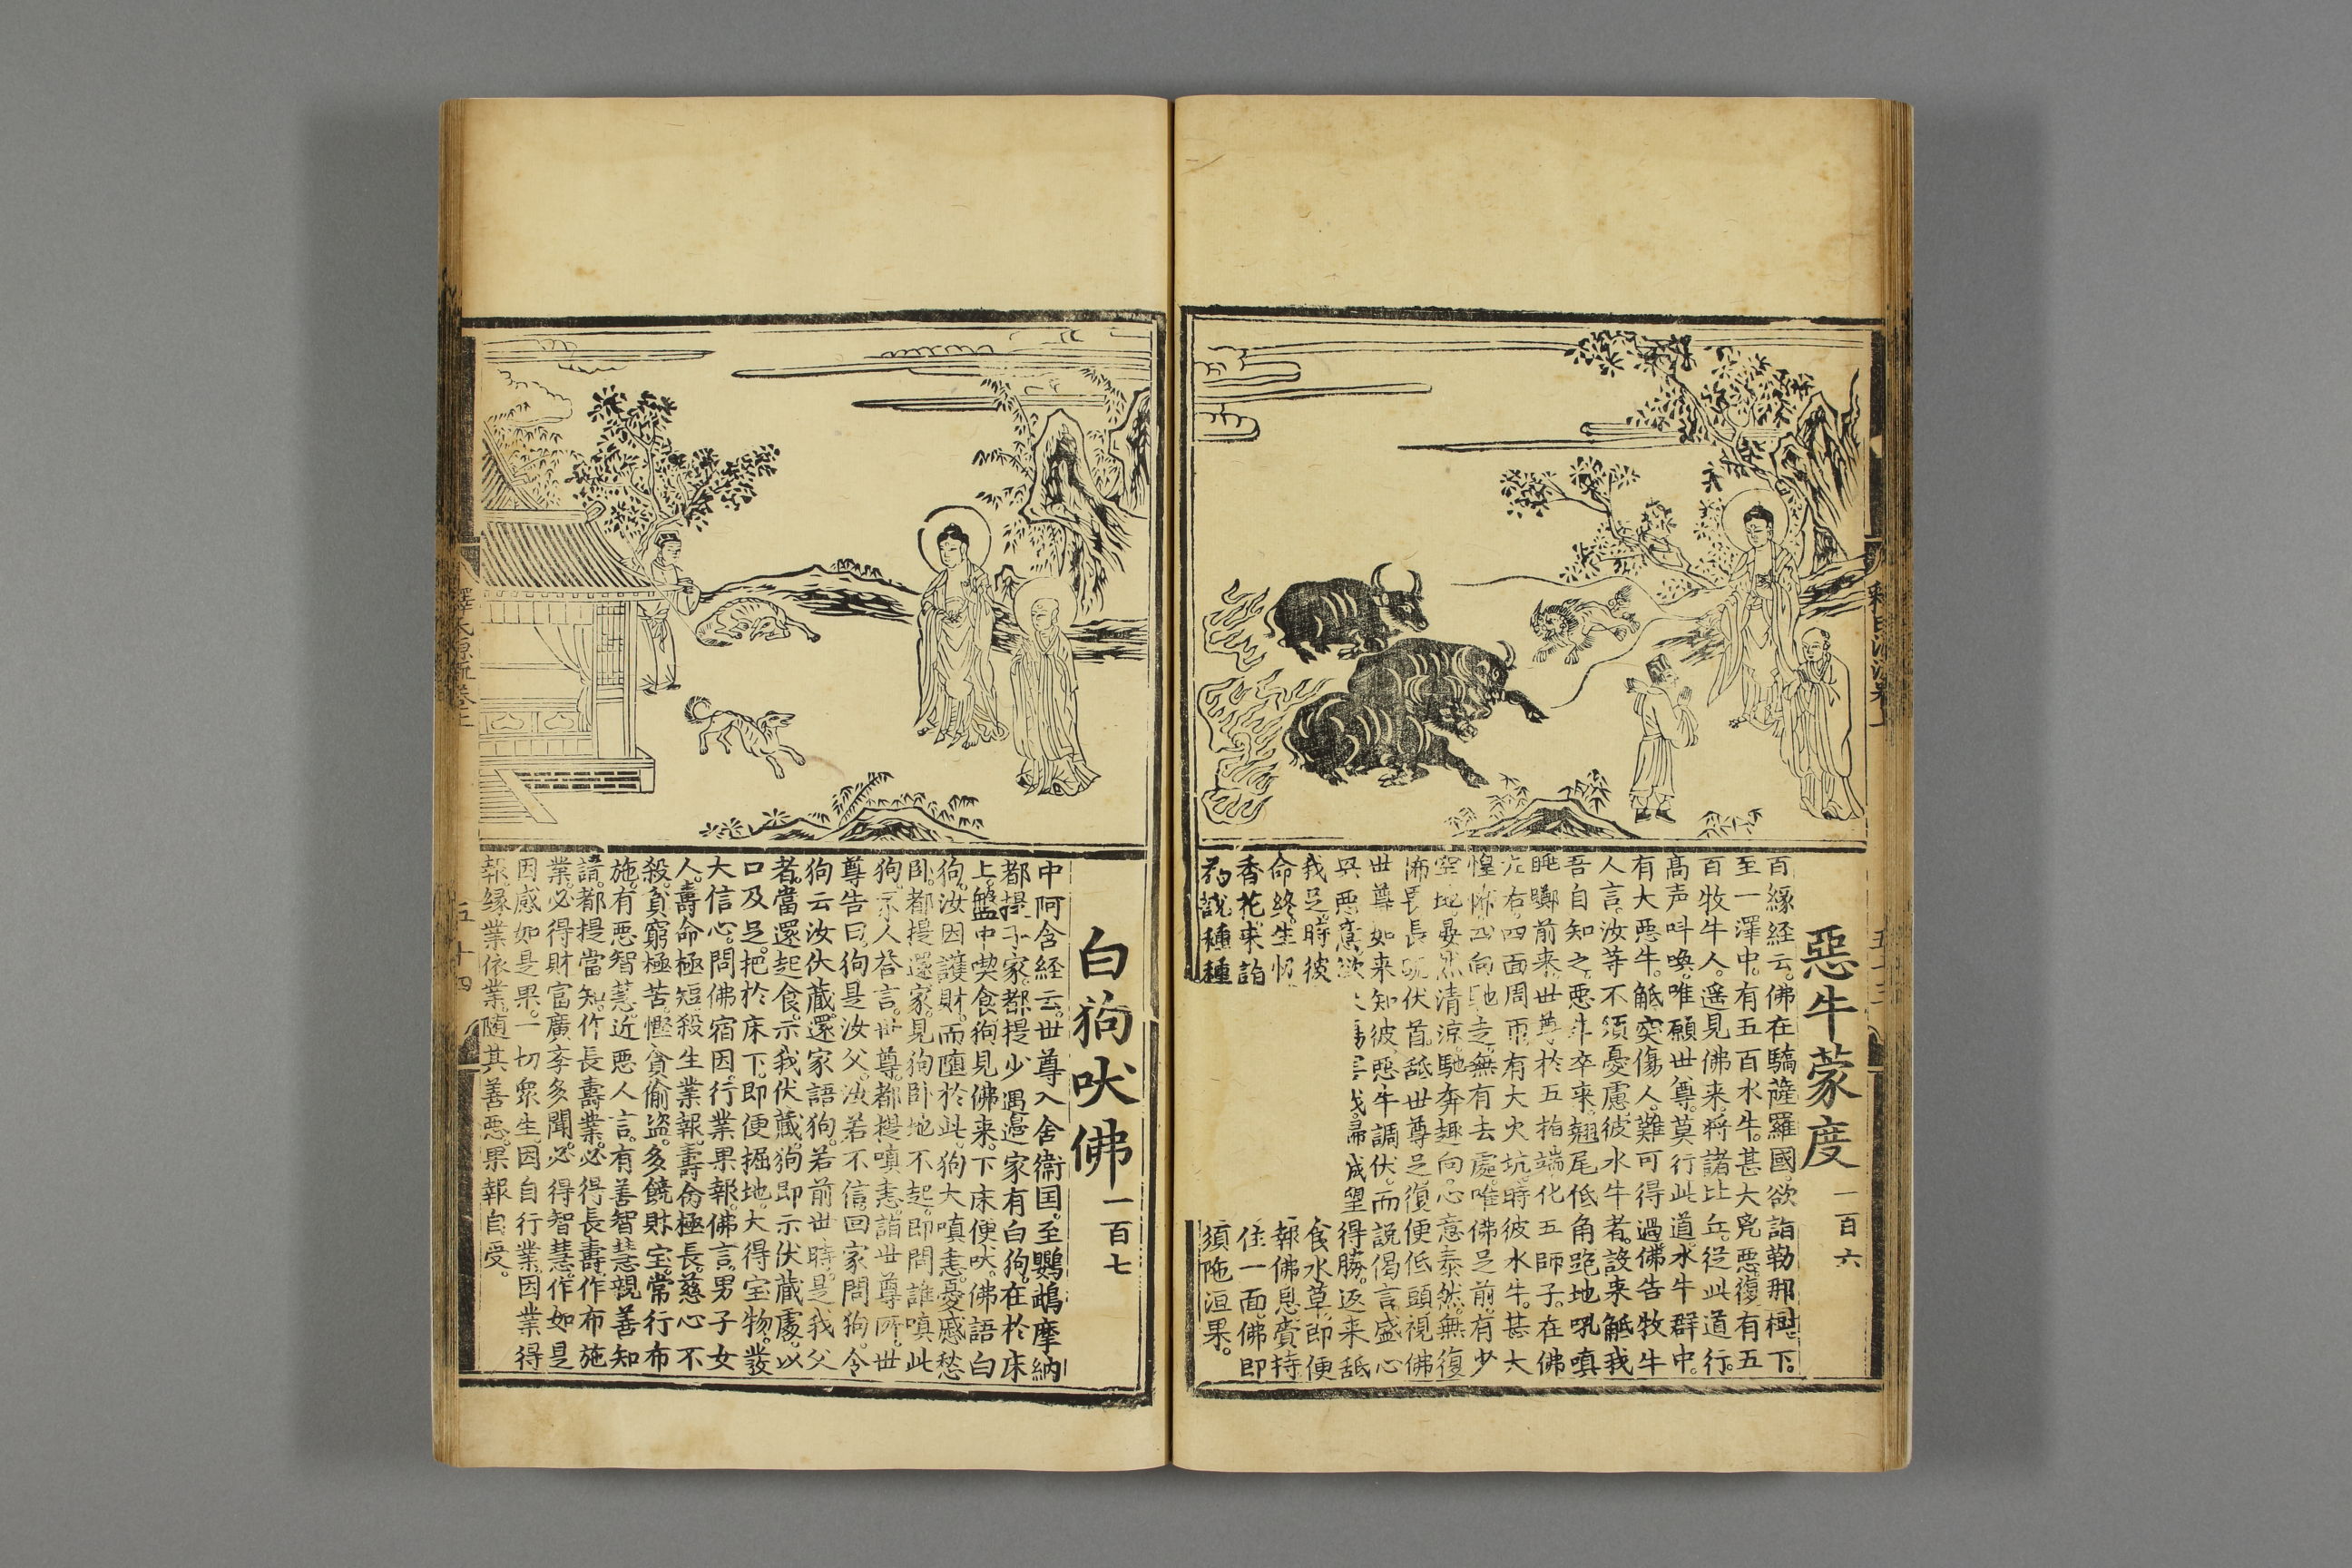 惡牛蒙度 一百六
百緣経云。佛在驕薩羅國。欲詣勒那樹下。
至一澤中。有五百水牛。甚大兇惡。復有五
百牧牛人。遥見佛来。将諸比丘。従此道行。
高声呌喚。唯願世尊。莫行此道。水牛群中。
有大悪牛。觝突傷人。難可得過。佛告牧牛
人言。汝等不須憂慮。彼水牛者。設来觝我
吾自知之。悪牛卒来。翹尾低角。跑地吼嗔
跳躑前来。世尊於五指端。化五師子。在佛
左右。四面周帀。有大火坑。時彼水牛。甚大
惶怖。四向馳走。無有去處。唯佛足前。有少
空地。晏然清涼。馳奔趣向。心意泰然。無復
怖畏。長跪伏首。舐世尊足。復便低頭。視佛
世尊。如来知彼。悪牛調伏。而說偈言。盛心
興悪意。欲
我。歸誠望得勝。返来舐
我足。時彼
食水草。即便
命終。生忉
報佛恩。賫持
香花。来詣
住一面。佛即
為説種種
須陁洹果。
白狗吠佛 一百七
中阿含経云。世尊入舍衞国。至鸚鵡摩納
都提子家。都提少遇邉家有白狗。在於床
上。盤中喫食。狗見佛来。下床便吠。佛語白
狗。汝因護財。而墮於此。狗大嗔恚。憂慼愁
卧。都提還家。見狗卧地不起。即問誰嗔此
狗。家人答言。世尊。都提嗔恚。詣世尊所。世
尊告曰。狗是汝父。汝若不信。回家問狗。令
狗云汝伏藏還家語狗。若前世時。是我父
者。當還起食。示我伏藏。狗即示伏藏處。以
口及足。把於床下。即便掘地。大得宝物。發
大信心。問佛宿因。行業果報。佛言。男子女
人。壽命極短。殺生業報。壽命極長。慈心不
殺。貧窮極苦。慳貪偷盗。多饒財宝。常行布
施。有悪智慧。近悪人言。有善智慧。親善知
識。都提當知。作長壽業。必得長壽。作布施
業。必得財富。廣李多聞。必得智慧。作如是
因。感如是果。一切衆生。因自行業。因業得
報。縁業依業。随其善悪。果報自受。
釋氏源流卷上
五十四